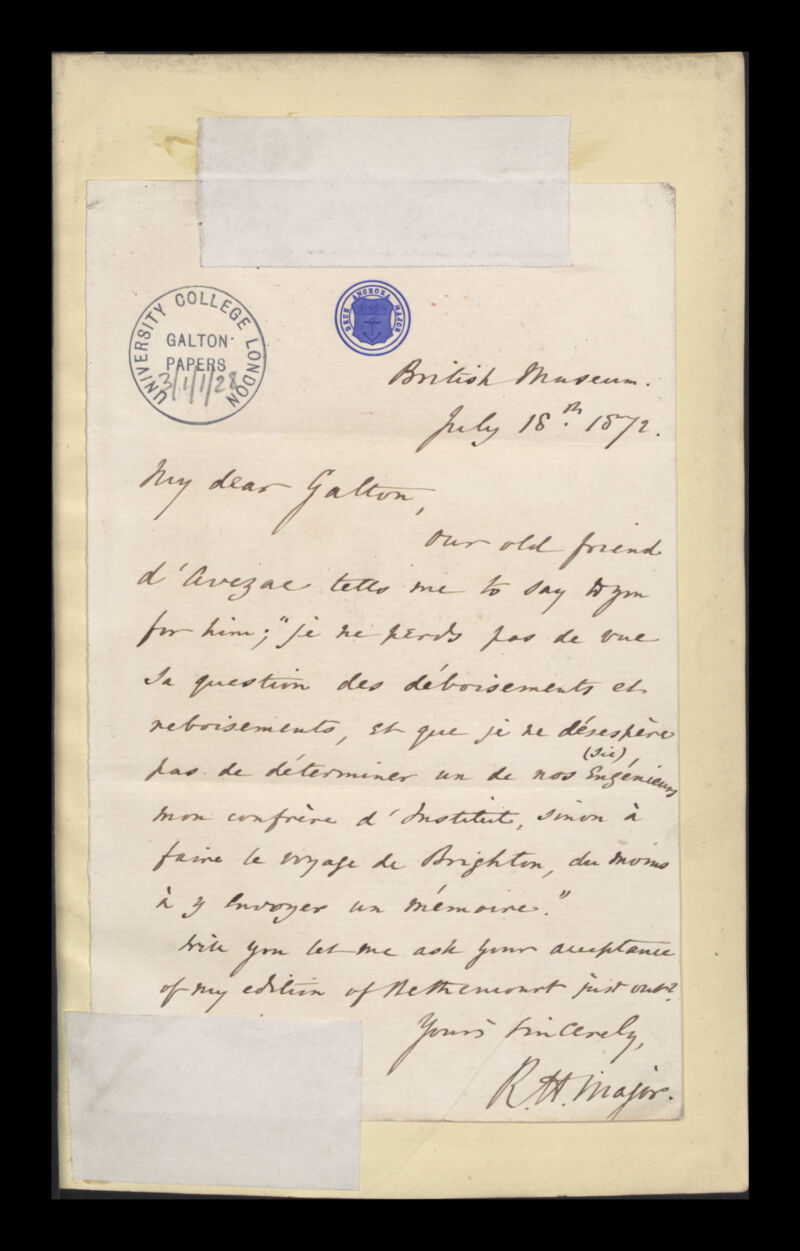 UNIVERSITY COLLEGE LONDON
GALTON
PAPERS
3/1/1/28
DEUS ANCHORA MAJOR
British Museum.
July 18th. 1872.
My dear Galton,
Our old friend
d'Avezac tells me to say to you
for him; "je ne perds pas de vue
la question des déboisements et
reboisements, et que je ne désespère
pas de déterminer un de nos Engénieurs
(sic)
mon confrère d'Institut, sinon à
faire le voyage de Brighton, du moins
à y envoyer un mémoire."
Will you let me ask your acceptance
of my edition of Bethencourt just out?
Yours sincerely,
R. H. Major.